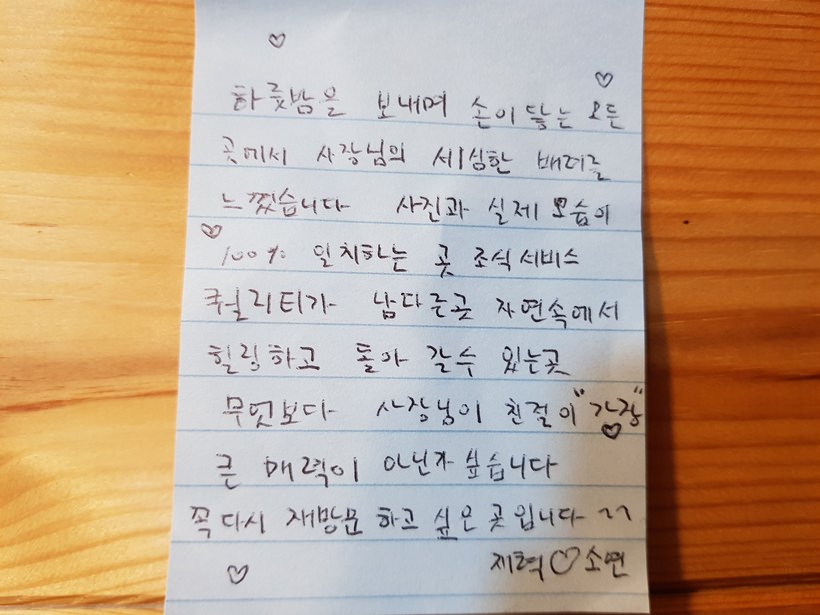 하룻밤을 보내며 손이 닿는 모든
곳에서 사장님의 세심한 배려를
느꼈습니다 사진과 실제 모습이
100% 일치하는 곳 조식서비스
퀄리티가 남다른곳 자연속에서
힐링하고 돌아 갈수 있는곳
무엇보다 사장님이 친절이 "가장"
큰 매력이 아닌가 싶습니다
꼭다시 재방문 하고 싶은 곳입니다 ~~
재혁♡소연